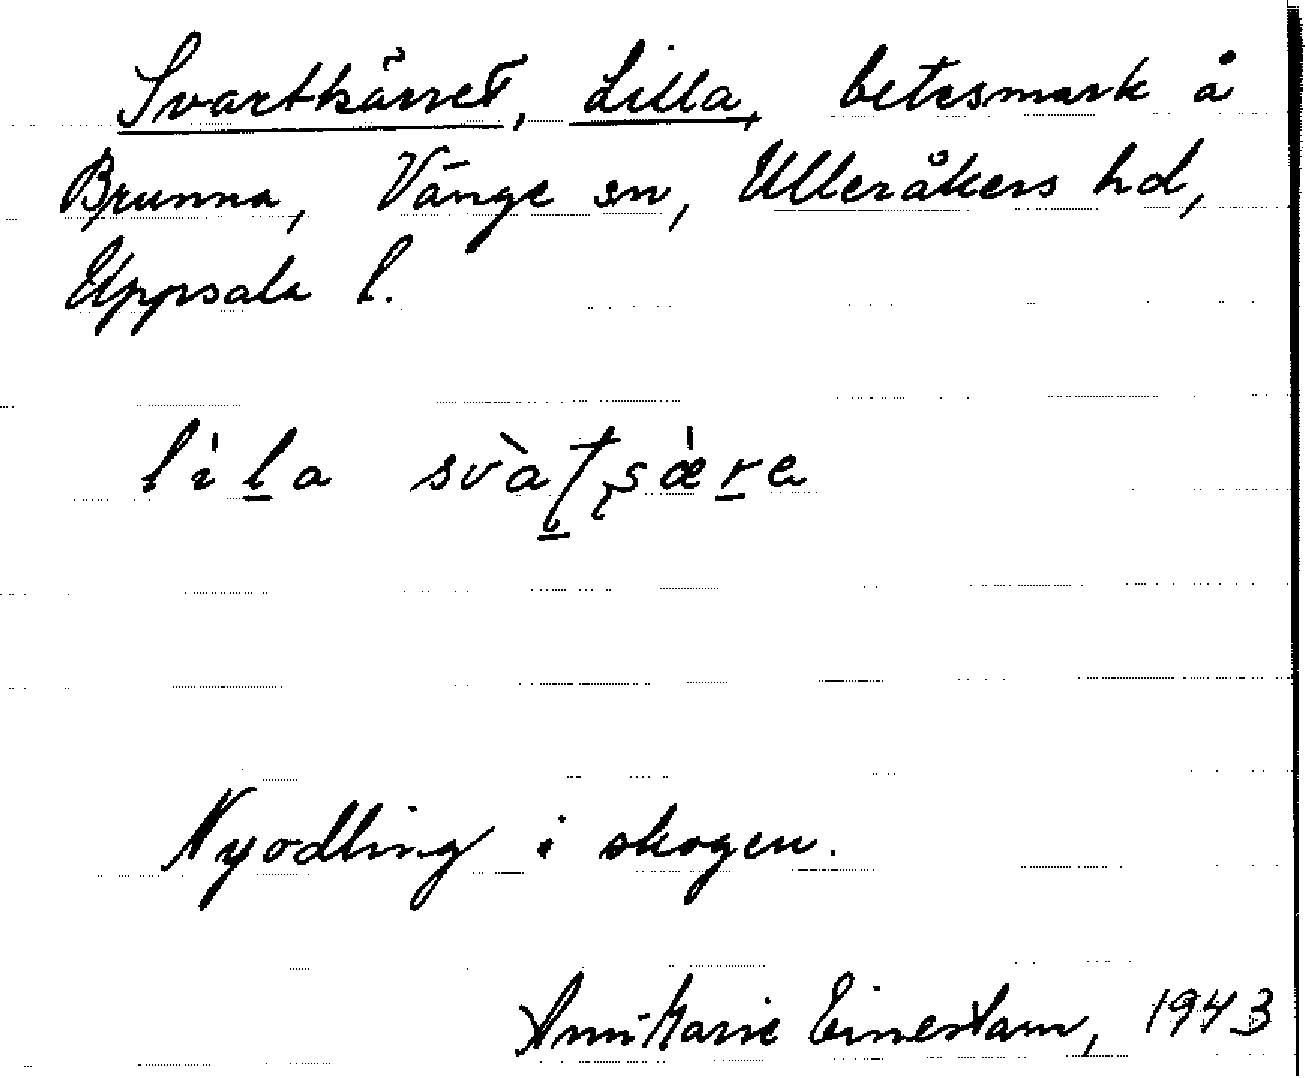 Svartkärret, Lilla, betesmark å
Brunna, Vänge sn, Ulleråkers hd,
Uppsala l.
lìla svàʈʂæ̀ra
Nyodling i skogen.
Ann-Marie Einerstam, 1943